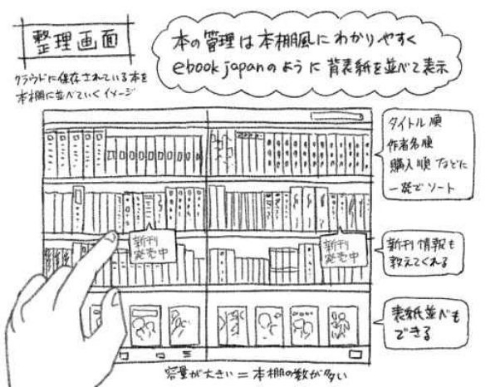 整理画面
クラウドに保存されている本を
本棚に並べていくイメージ
本の管理は本棚風にわかりやすく
ebookjapanのように背表紙を並べて表示
タイトル順
作者名順
購入順などに
一発でソート
新刊
発売中
新刊
発売中
新刊情報も
教えてくれる
表紙並べも
できる
容量が大きい=本棚の数が多い